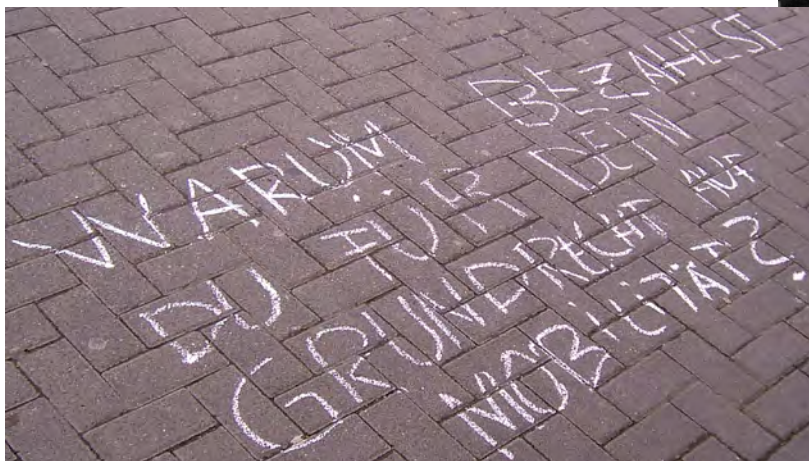 WARUM BEZAHLST
DU FÜR DEIN
GRUNDRECHT AUF
MOBILITÄT?